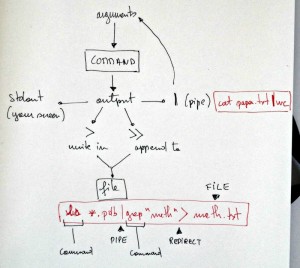 arguments
COMMAND
stdout
(your screen)
output
| (pipe)
cat papa.txt | wc
> >>
write in append to
file
FILE
*.pdb | grep "meth" > meth.txt
Command PIPE Command REDIRECT